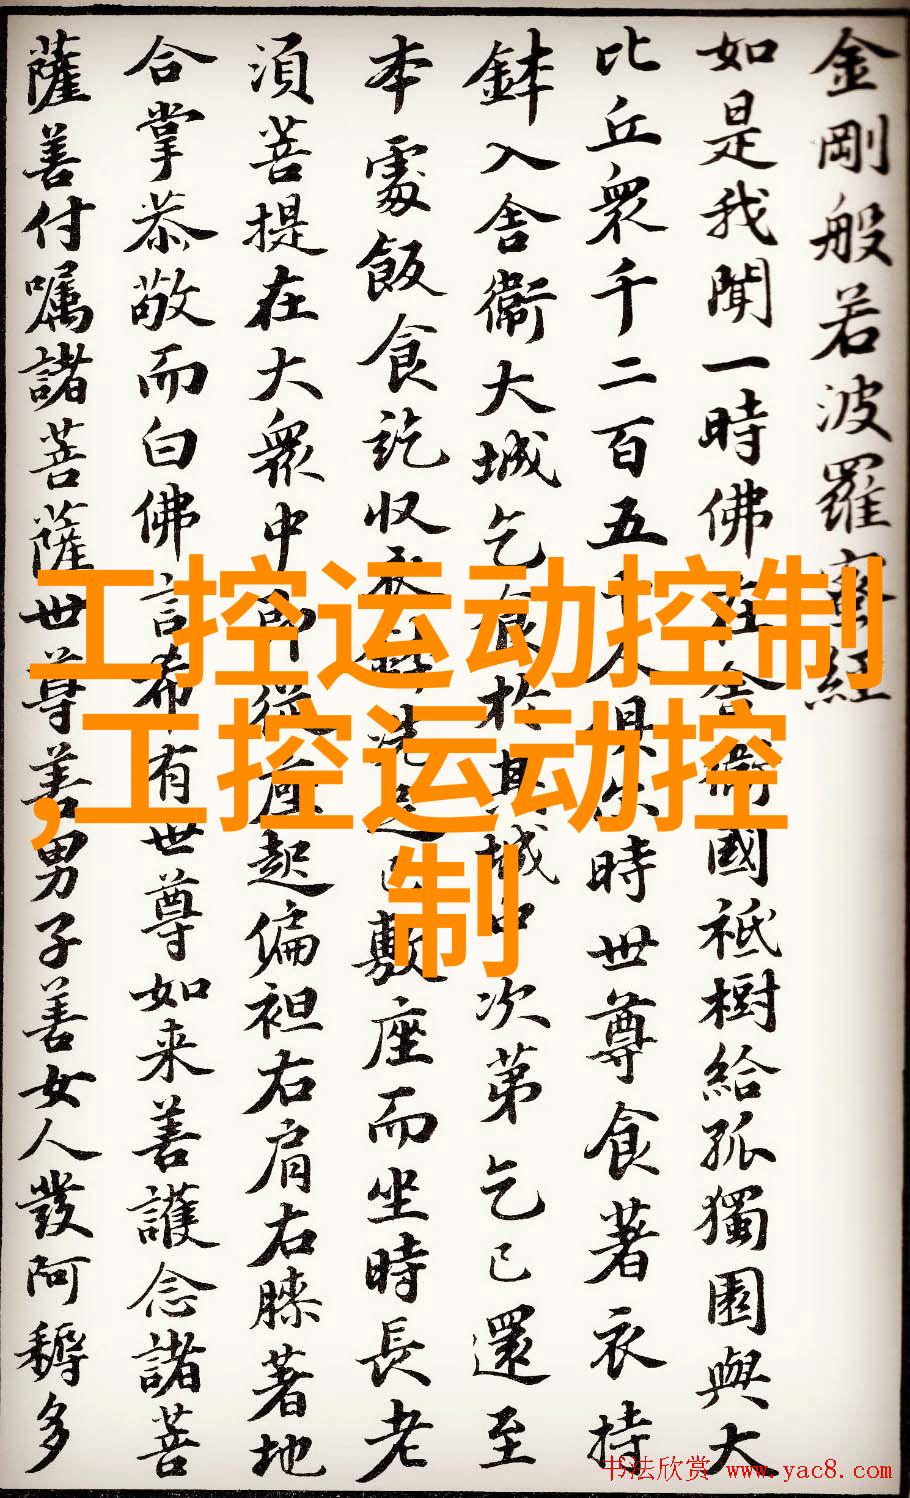 金剛般若波羅蜜經
如是我聞一時佛在舍衞國祇樹給孤獨園與大
比丘衆千二百五十人俱尒時世尊食著衣持
鉢入舍衞大城乞食於其城中次第乞已還至
本處飯食訖收衣鉢洗足已敷座而坐時長老
湏菩提在大衆中即從座起偏袒右肩右膝著地
合掌恭敬而白佛言希有世尊如来善護念諸菩
薩善付嘱諸菩薩世尊善男子善女人發阿耨多
工控运动控制
,工控运动控
制
书法欣赏 www.yac8.com